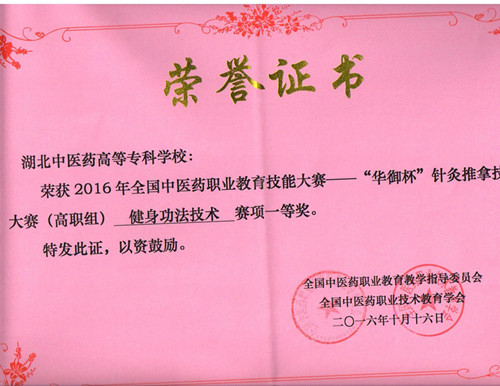 荣誉证书
湖北中医药高等专科学校：
荣获2016年全国中医药职业教育技能大赛——“华御杯”针灸推拿技
大赛（高职组） 健身功法技术 赛项一等奖。
特发此证，以资鼓励。
全国中医药职业教育教学指导委员会
全国中医药职业技术教育学会
二〇一六年十月十六日